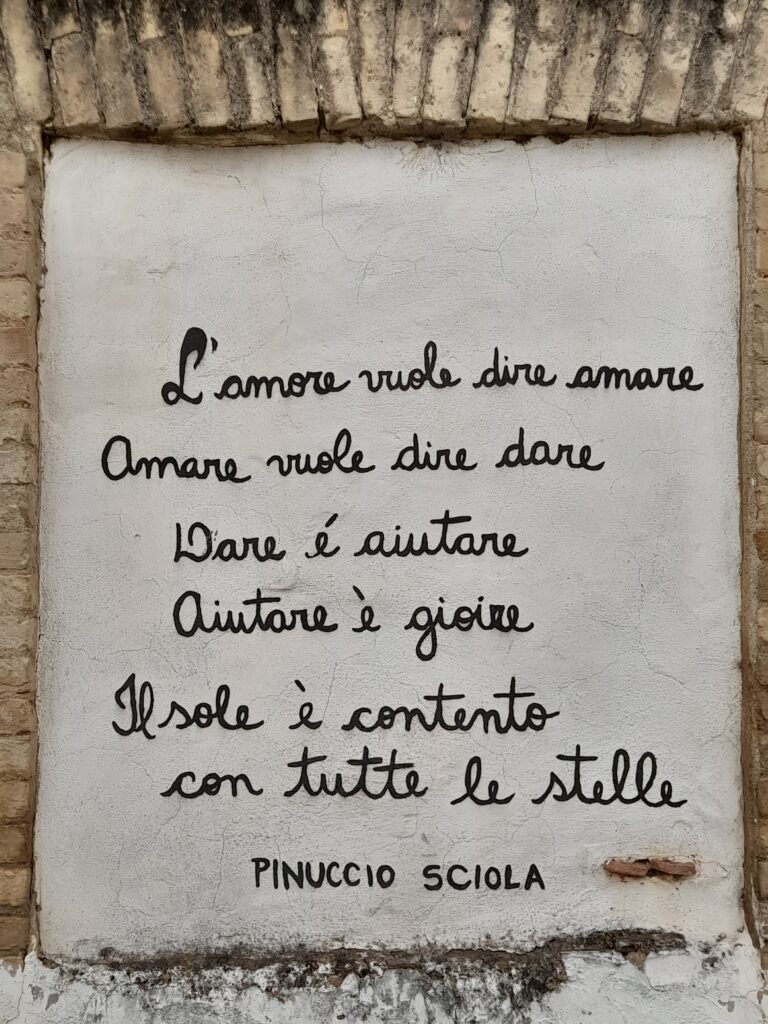 L'amore vuole dire amare
Amare vuole dire dare
Dare é aiutare
Aiutare è gioire
Il sole è contento
con tutte le stelle
PINUCCIO SCIOLA